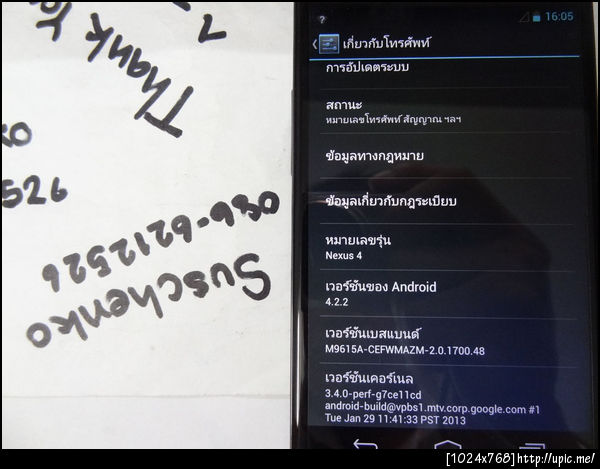 Thank You
526
086-6212526
Suschenko
?
16:05
เกี่ยวกับโทรศัพท์
การอัปเดตระบบ
สถานะ
หมายเลขโทรศัพท์ สัญญาณ ฯลฯ
ข้อมูลทางกฎหมาย
ข้อมูลเกี่ยวกับกฎระเบียบ
หมายเลขรุ่น
Nexus 4
เวอร์ชันของ Android
4.2.2
เวอร์ชันเบสแบนด์
M9615A-CEFWMAZM-2.0.1700.48
เวอร์ชันเคอร์เนล
3.4.0-perf-g7ce11cd
android-build@vpbs1.mtv.corp.google.com #1
Tue Jan 29 11:41:33 PST 2013
[1024x768]http://upic.me/